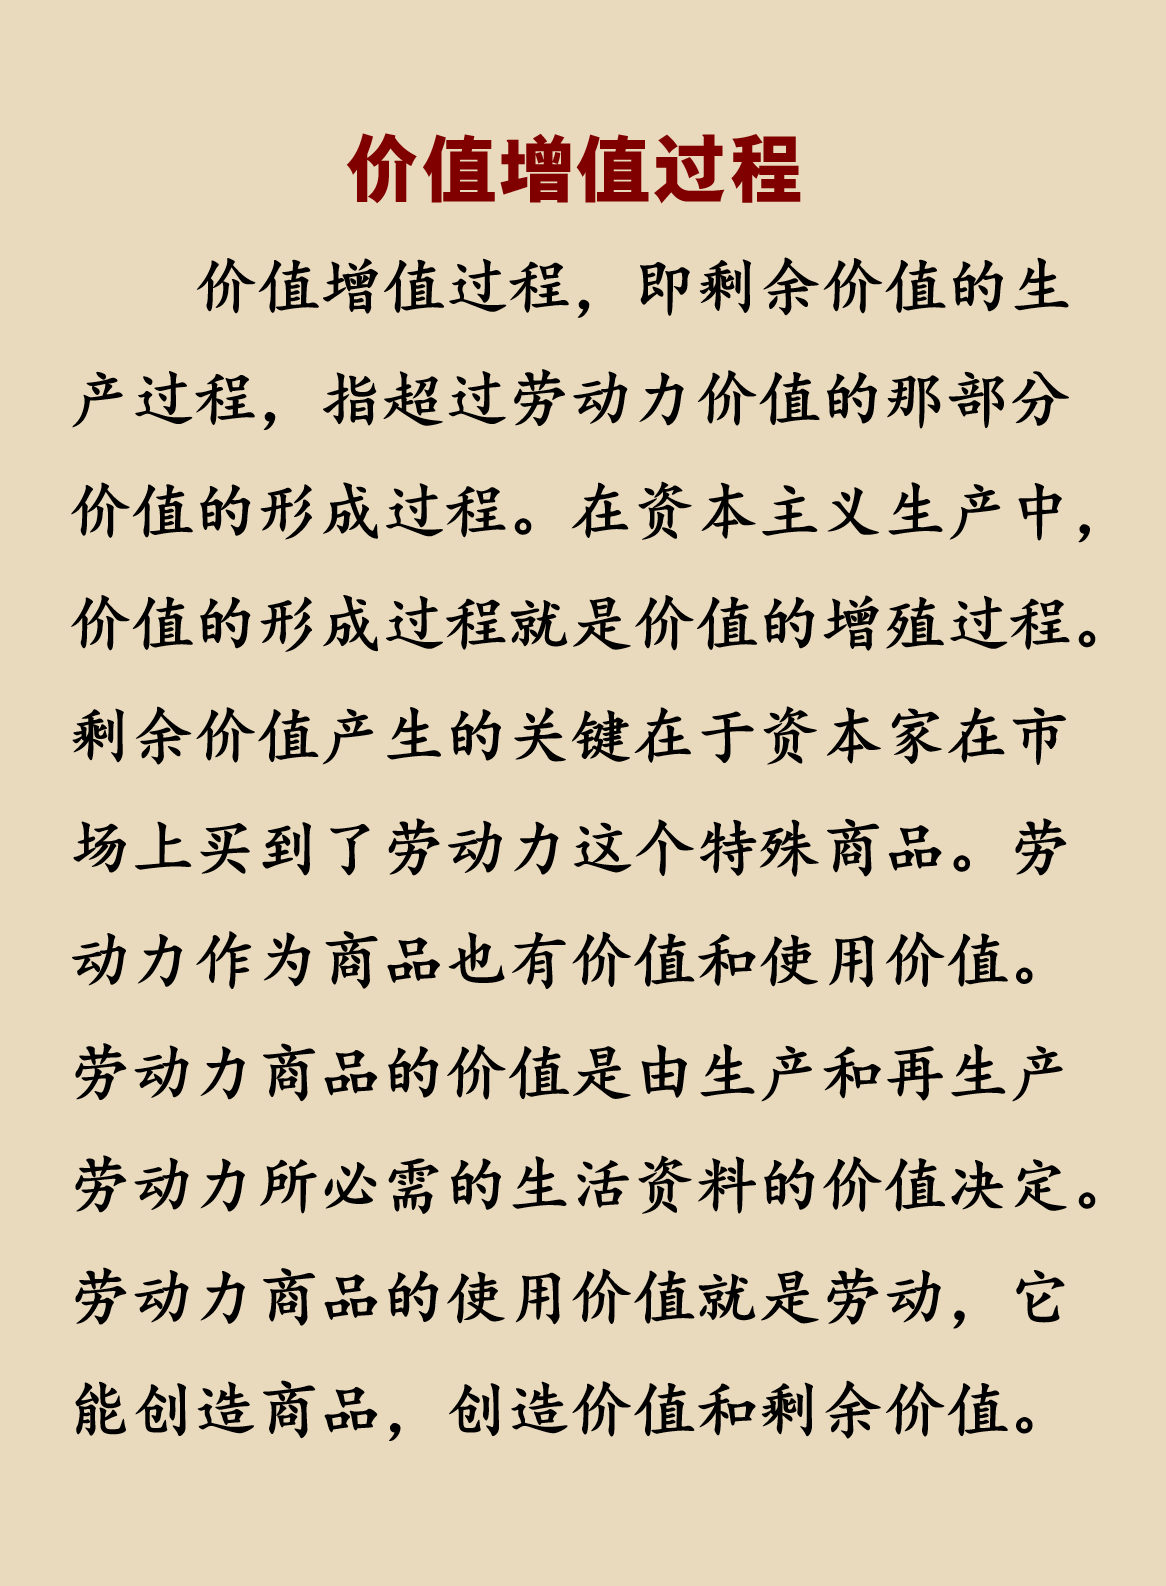 价值增值过程
价值增值过程，即剩余价值的生
产过程，指超过劳动力价值的那部分
价值的形成过程。在资本主义生产中，
价值的形成过程就是价值的增殖过程。
剩余价值产生的关键在于资本家在市
场上买到了劳动力这个特殊商品。劳
动力作为商品也有价值和使用价值。
劳动力商品的价值是由生产和再生产
劳动力所必需的生活资料的价值决定。
劳动力商品的使用价值就是劳动，它
能创造商品，创造价值和剩余价值。